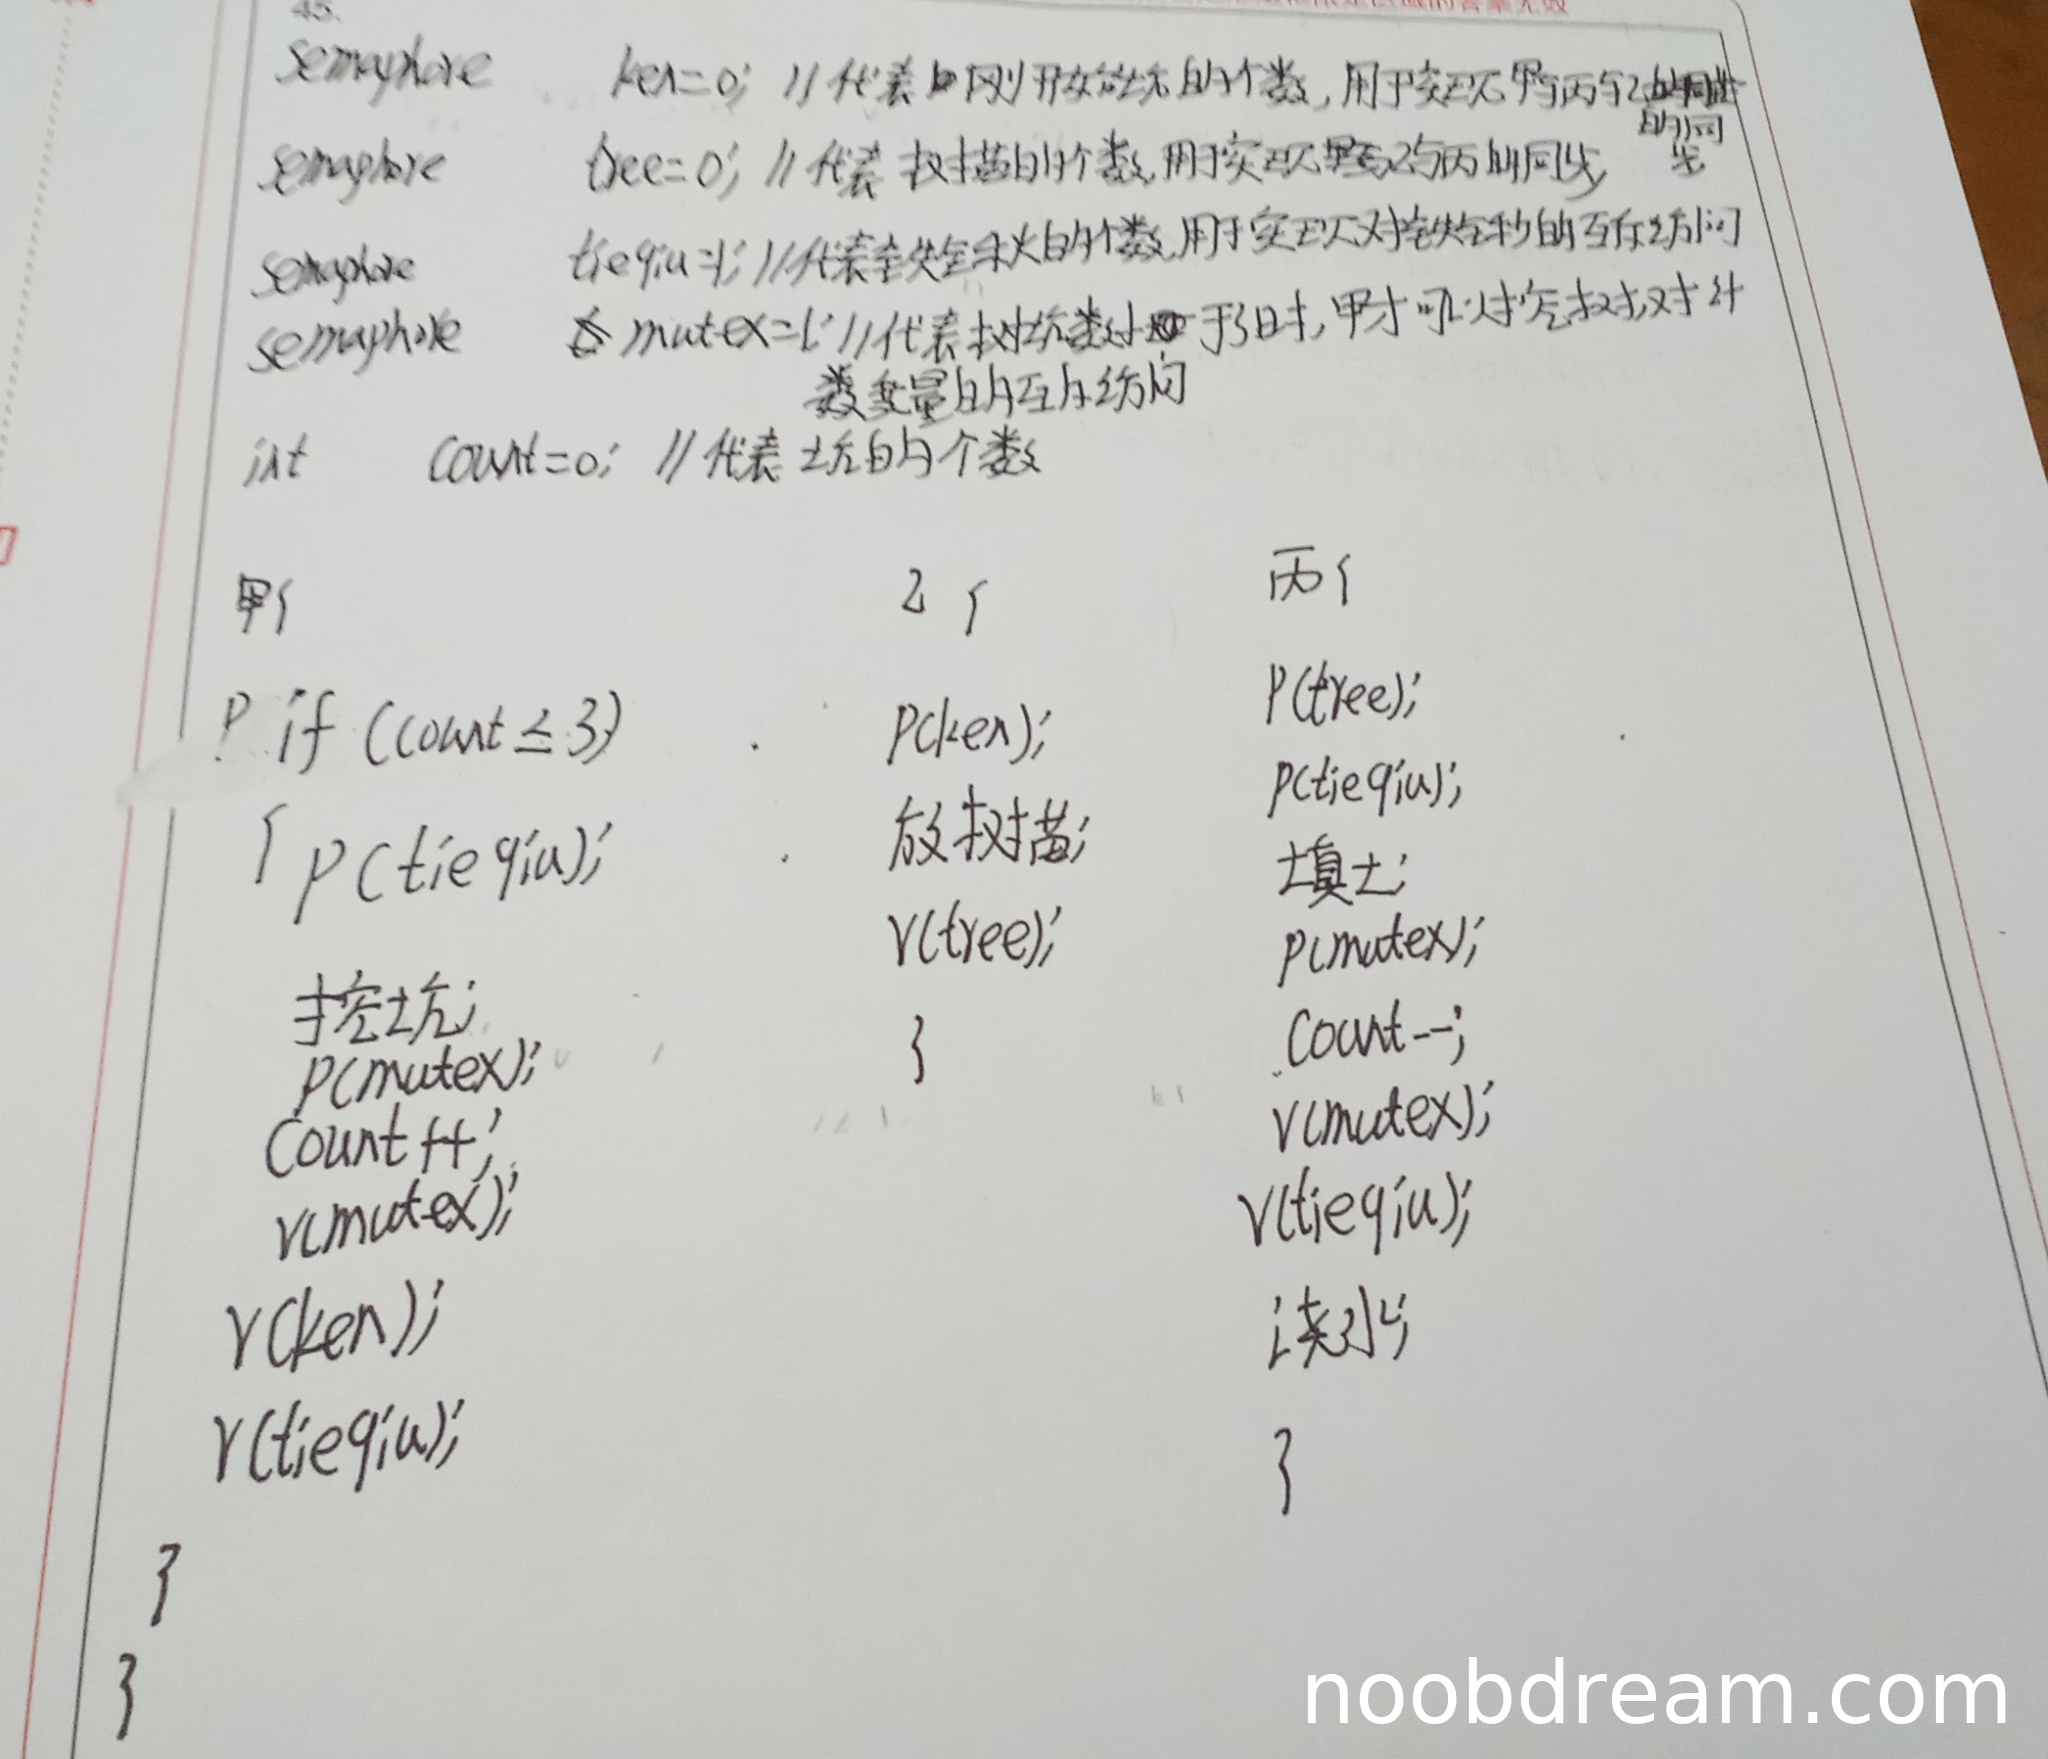 45.
semaphore ken=0; //代表刚开始坑的个数,用于实现甲与丙与乙的同步
semaphore tree=0; //代表树苗的个数,用于实现乙与丙的同步
semaphore tieqiu=1; //代表铁锹的个数,用于实现对铁锹的互斥访问
semaphore mutex=1; //代表树坑数小于3时,甲才可以挖树,对计
数变量的互斥访问
int count=0; //代表坑的个数
甲{
乙{
丙{
P if (count≤3)
{ P(tieqiu);
挖坑;
P(mutex);
Count++;
V(mutex);
V(ken);
V(tieqiu);
}
}
P(ken);
放树苗;
V(tree);
}
P(tree);
P(tieqiu);
填土;
P(mutex);
Count--;
V(mutex);
V(tieqiu);
浇水;
}
noobdream.com